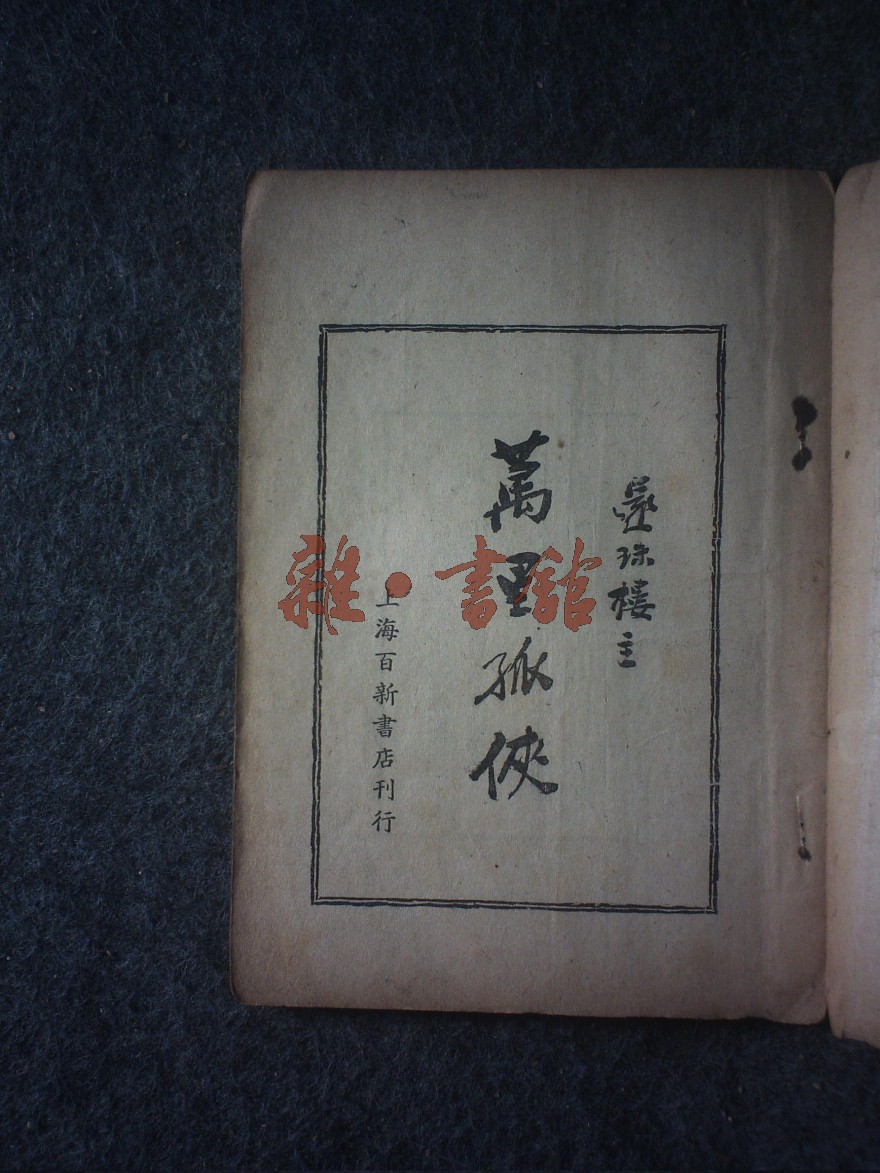 還珠樓主
萬里孤俠
上海百新書店刊行
雜·書館